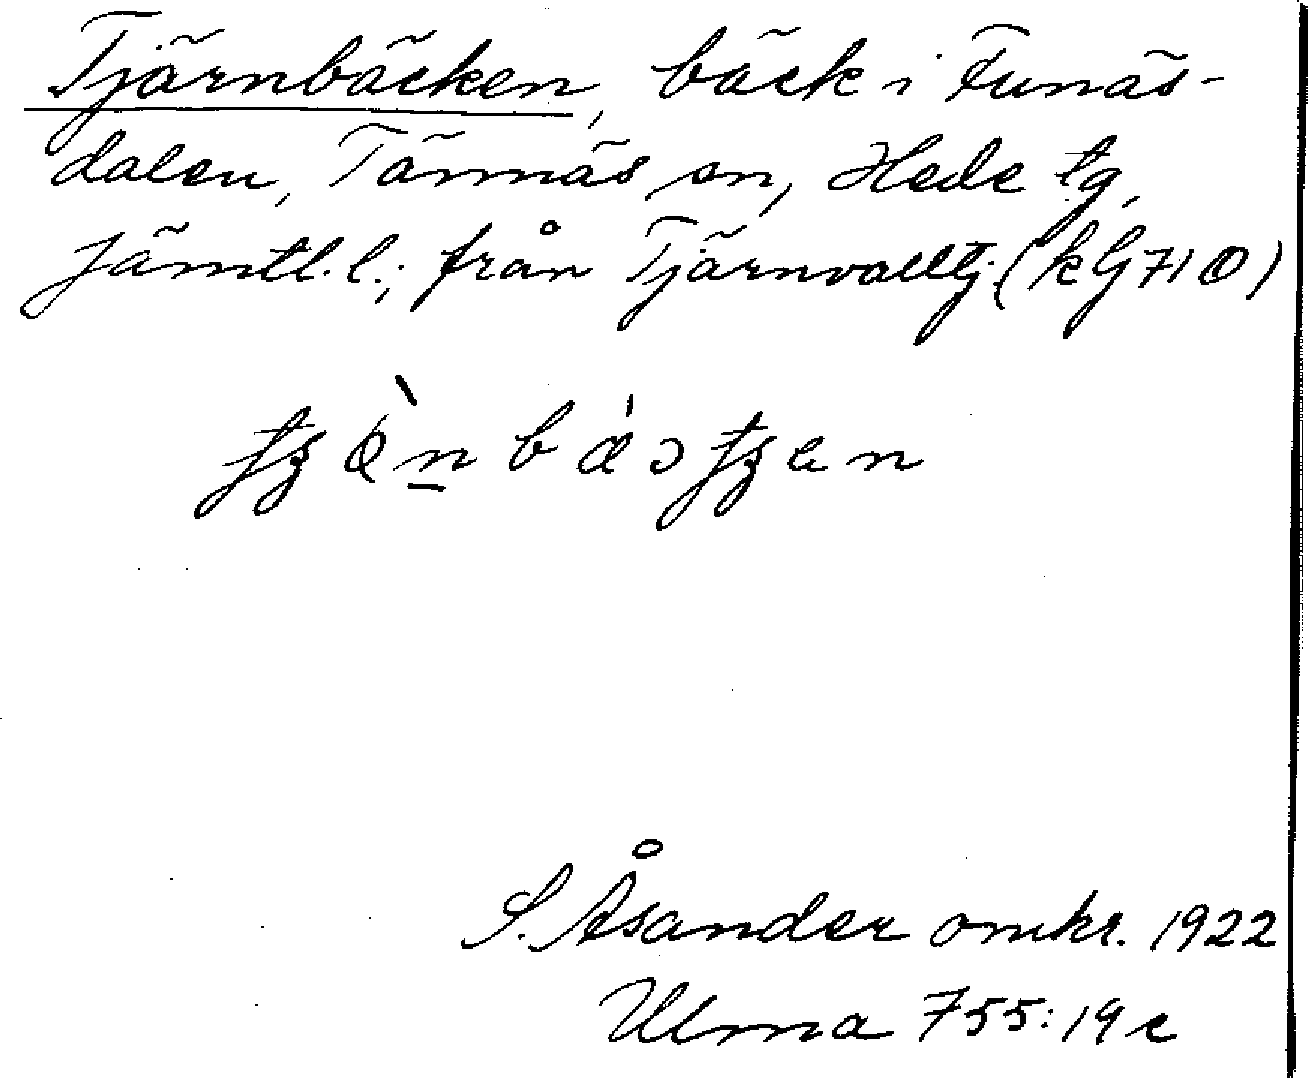 Tjärnbäcken, bäck i Funäs-
dalen, Tännäs sn, Hede tg,
Jämtl. l.; från Tjärnvalltj. (kG710)
S. Åsander omkr. 1922
Ulma 755:19c